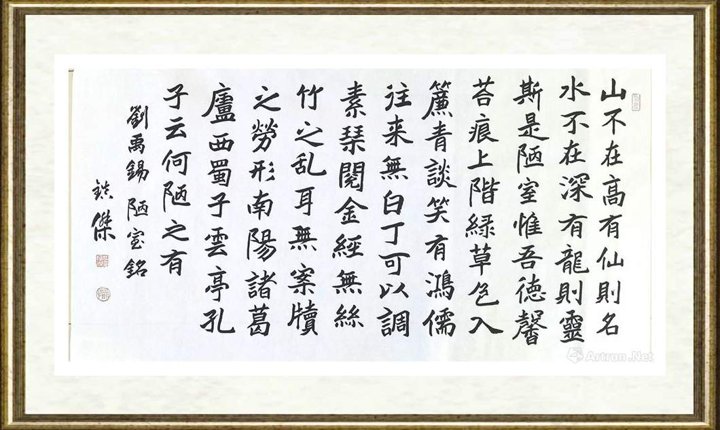 山不在高有仙則名
水不在深有龍則靈
斯是陋室惟吾徳馨
苔痕上階緑草色入
簾青談笑有鴻儒
往来無白丁可以調
素琴閱金經無絲
竹之乱耳無案牘
之勞形南陽諸葛
廬西蜀子雲亭孔
子云何陋之有
劉禹錫 陋室銘
傑
Artron.Net